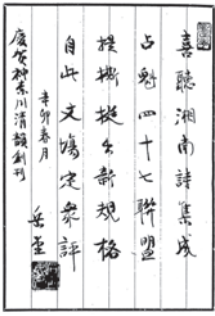 喜聽湘南詩集成
占魁四十七聯盟
提撕挺出新規格
自此文場定衆評
辛卯春月
慶賀神奈川清韻創刊
岳堂